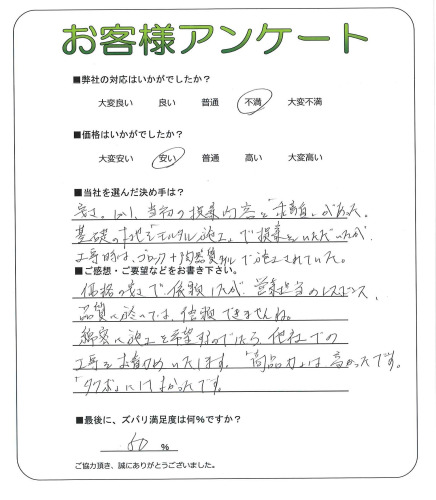 お客様アンケート
■弊社の対応はいかがでしたか？
大変良い 良い 普通 不満 大変不満
■価格はいかがでしたか？
大変安い 安い 普通 高い 大変高い
■当社を選んだ決め手は？
安さ。しかし、当初の提案内容と「矛盾」があった。
基礎の下地を「モルタル施工」で提案をいただいたが、
工事時は、ブロック＋で施工されていた。
■ご感想・ご要望などをお書き下さい。
価格の安さで依頼したが、営業担当のレスポンス、
品質に於いては、信頼できませんね。
綿密な施工を希望するのでしたら、他社での
工事をお勧めいたします。「商品力」は高かったです。
「タクボ」にしてよかったです。
■最後に、ズバリ満足度は何%ですか？
50 %
ご協力頂き、誠にありがとうございました。